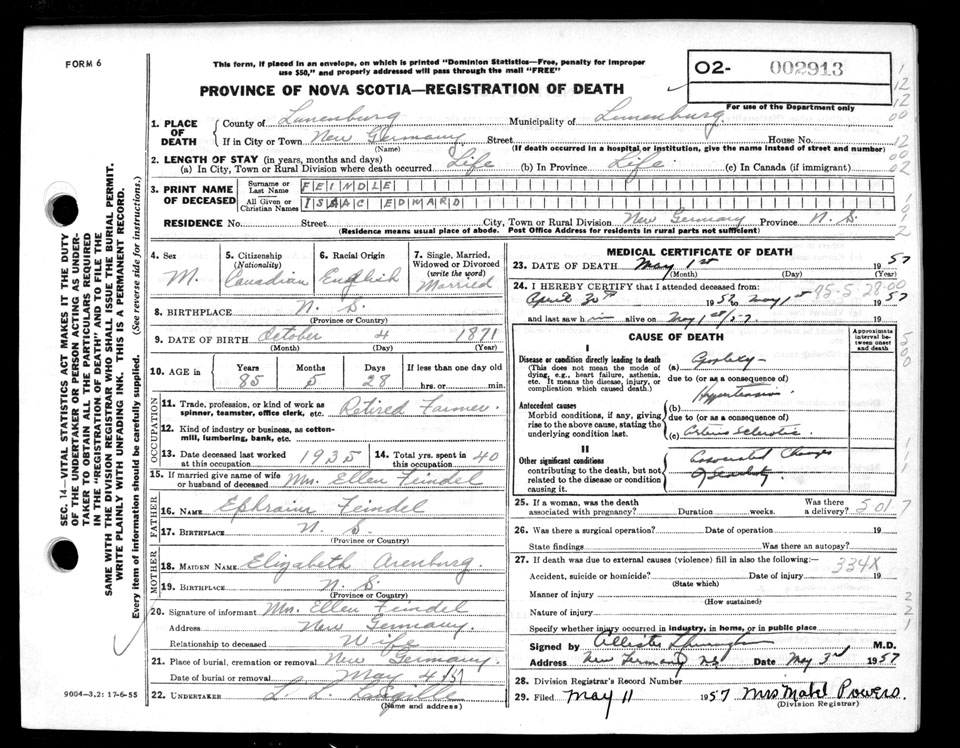 FORM 6
This form, if placed in an envelope, on which is printed "Dominion Statistics—Free, penalty for improper
use $50," and properly addressed will pass through the mail "FREE"
02- 002913
For use of the Department only
PROVINCE OF NOVA SCOTIA—REGISTRATION OF DEATH
1. PLACE OF DEATH County of Lunenburg Municipality of Lunenburg
If in City or Town New Germany Street House No.
(Name) (If death occurred in a hospital or institution, give the name instead of street and number)
2. LENGTH OF STAY (in years, months and days)
(a) In City, Town or Rural Division where death occurred Life (b) In Province Life (c) In Canada (if immigrant)
3. PRINT NAME OF DECEASED Surname or Last Name FEINDLE
All Given or Christian Names ISAAC EDWARD
RESIDENCE No. Street City, Town or Rural Division New Germany Province N. S.
(Residence means usual place of abode. Post Office Address for residents in rural parts not sufficient)
4. Sex M.
5. Citizenship (Nationality) Canadian
6. Racial Origin English
7. Single, Married, Widowed or Divorced (write the word) Married
8. BIRTHPLACE N. S.
(Province or Country)
9. DATE OF BIRTH October 4 1871
(Month) (Day) (Year)
10. AGE in Years 85 Months 5 Days 28 If less than one day old hrs. or min.
OCCUPATION
11. Trade, profession, or kind of work as spinner, teamster, office clerk, etc. Retired Farmer.
12. Kind of industry or business, as cotton-mill, lumbering, bank, etc.
13. Date deceased last worked at this occupation 1935 14. Total yrs. spent in this occupation 40
15. If married give name of wife or husband of deceased Mrs. Ellen Feindel
FATHER
16. NAME Ephraim Feindel
17. BIRTHPLACE N. S.
(Province or Country)
MOTHER
18. MAIDEN NAME Elizabeth Arenburg.
19. BIRTHPLACE N. S.
(Province or Country)
20. Signature of informant Mrs. Ellen Feindel
Address New Germany.
Relationship to deceased Wife
21. Place of burial, cremation or removal New Germany.
Date of burial or removal May 4/57
22. UNDERTAKER
(Name and address)
MEDICAL CERTIFICATE OF DEATH
23. DATE OF DEATH May 1st 1957
(Month) (Day) (Year)
24. I HEREBY CERTIFY that I attended deceased from:
April 30th 1952 to May 1st 1957
95-5-28-00
and last saw him alive on May 1st/57. 19
CAUSE OF DEATH
Approximate interval between onset and death
I
Disease or condition directly leading to death (a)
(This does not mean the mode of dying, e.g., heart failure, asthenia, etc. It means the disease, injury, or complication which caused death.)
due to (or as a consequence of)
Hypertension
Antecedent causes (b)
Morbid conditions, if any, giving rise to the above cause, stating the underlying condition last.
due to (or as a consequence of)
(c) Arterio Sclerotic
II
Other significant conditions contributing to the death, but not related to the disease or condition causing it.
Associated Changes
25. If a woman, was the death associated with pregnancy? Duration weeks. Was there a delivery?
5017
26. Was there a surgical operation? Date of operation 19
State findings Was there an autopsy?
27. If death was due to external causes (violence) fill in also the following:
334X
Accident, suicide or homicide? Date of injury 19
(State which)
Manner of injury
(How sustained)
Nature of injury
Specify whether injury occurred in industry, in home, or in public place
Signed by M.D.
Address New Germany NS Date May 3rd 1957
28. Division Registrar's Record Number
29. Filed May 11 1957 Mrs Mabel Powers.
(Division Registrar)
SEC. 14—VITAL STATISTICS ACT MAKES IT THE DUTY
OF THE UNDERTAKER OR PERSON ACTING AS UNDER-
TAKER TO OBTAIN ALL THE PARTICULARS REQUIRED
IN THE "REGISTRATION OF DEATH" AND TO FILE THE
SAME WITH THE DIVISION REGISTRAR WHO SHALL ISSUE THE BURIAL PERMIT.
WRITE PLAINLY WITH UNFADING INK. THIS IS A PERMANENT RECORD.
Every item of information should be carefully supplied. (See reverse side for instructions.)
9004—3,2: 17-6-55